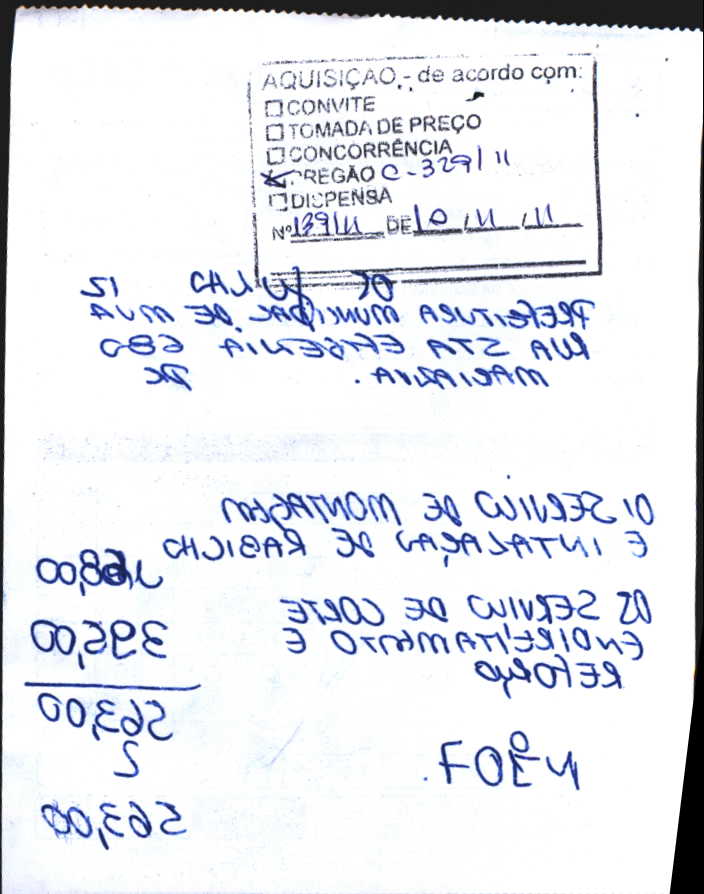 AQUISIÇÃO - de acordo com:
☐ CONVITE
☐ TOMADA DE PREÇO
☐ CONCORRÊNCIA
☒ PREGÃO C-329/11
☐ DISPENSA
Nº 139/11 DE 10/11/11
DE JULHO 12
PREFEITURA MUNICIPAL DE
RUA STA EFIGENIA 680
01 SERVIÇO DE MONTAGEM
E INTALAÇAU DE RABICHO
168,00
02 SERVIÇO DE CORTE
ENDIREITAMENTO E
395,00
REFORÇO
563,00
Nº 307
2
563,00